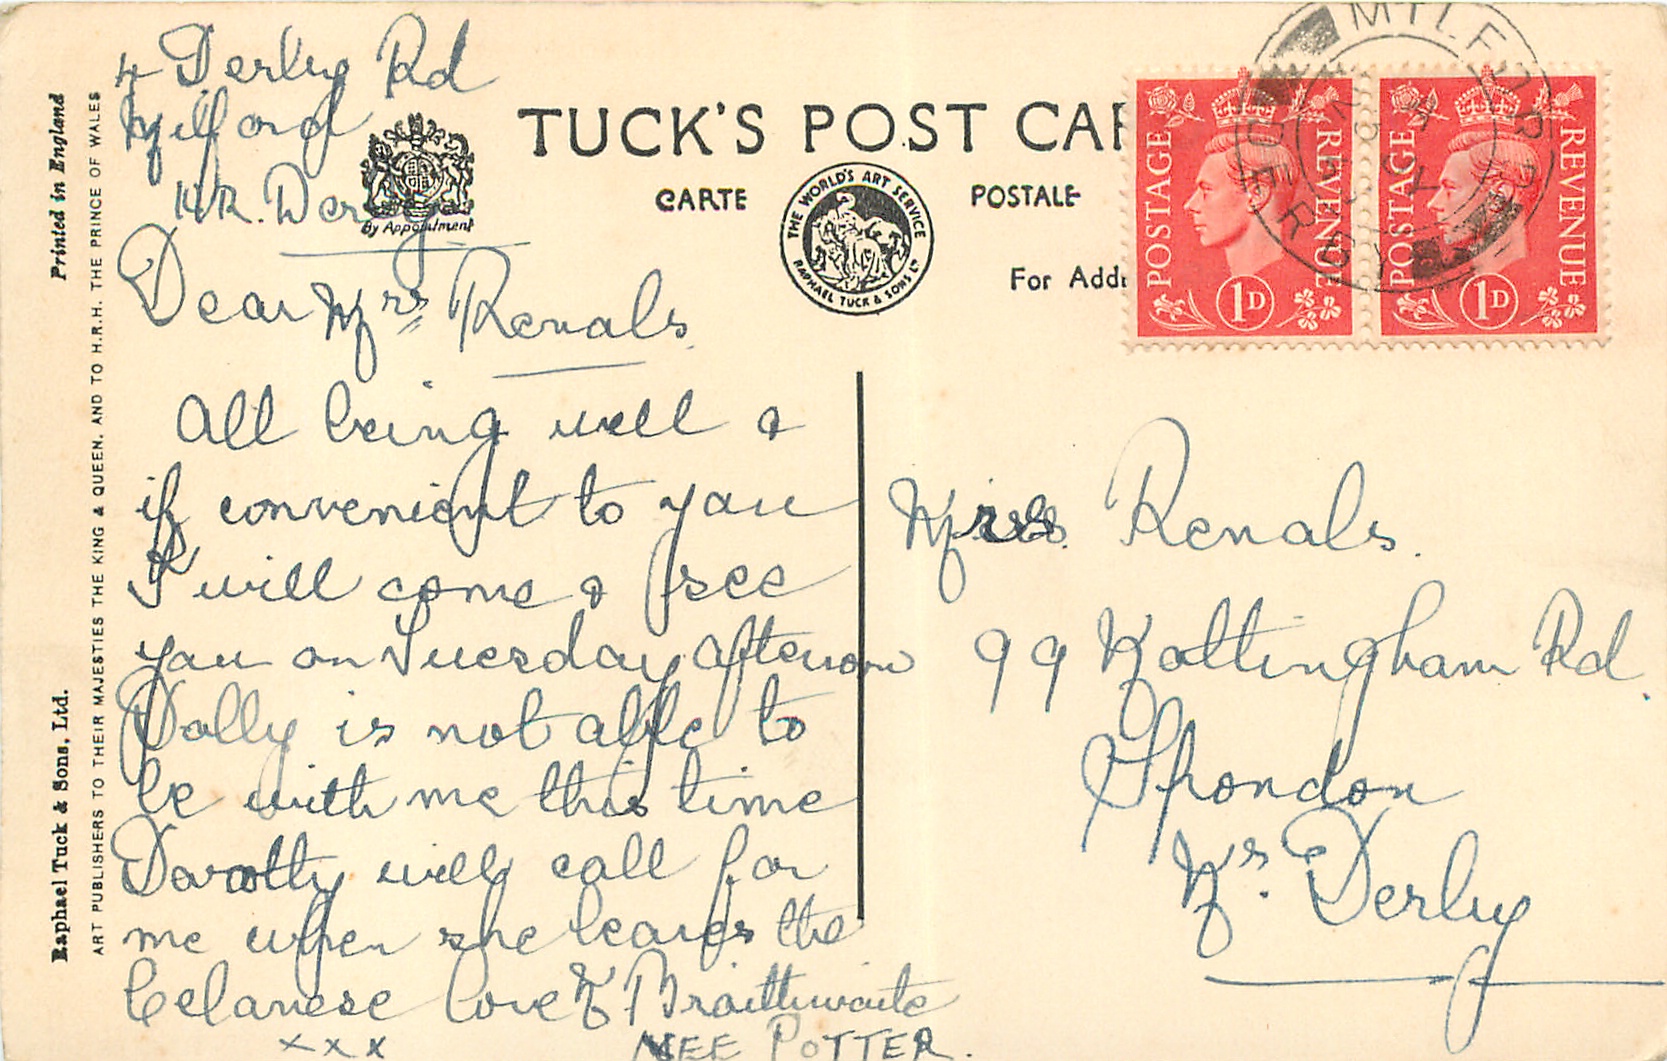 4 Derby Rd
Milford
Nr. Derby
Dear Mrs Renals
All being well &
if convenient to you
I will come & see
you on Tuesday afternoon
Dolly is not able to
be with me this time
Dorothy will call for
me when she leaves the
Celanese Love Braithwaite
x x x NEE POTTER.
TUCK'S POST CAR
CARTE POSTALE
By Appointment
THE WORLD'S ART SERVICE
RAPHAEL TUCK & SONS LTD
For Addr
POSTAGE REVENUE
1D
POSTAGE REVENUE
1D
MILFORD
DERBY
Renals.
99 Nottingham Rd.
Spondon
Nr. Derby
Printed in England
Raphael Tuck & Sons, Ltd.
ART PUBLISHERS TO THEIR MAJESTIES THE KING & QUEEN, AND TO H.R.H. THE PRINCE OF WALES